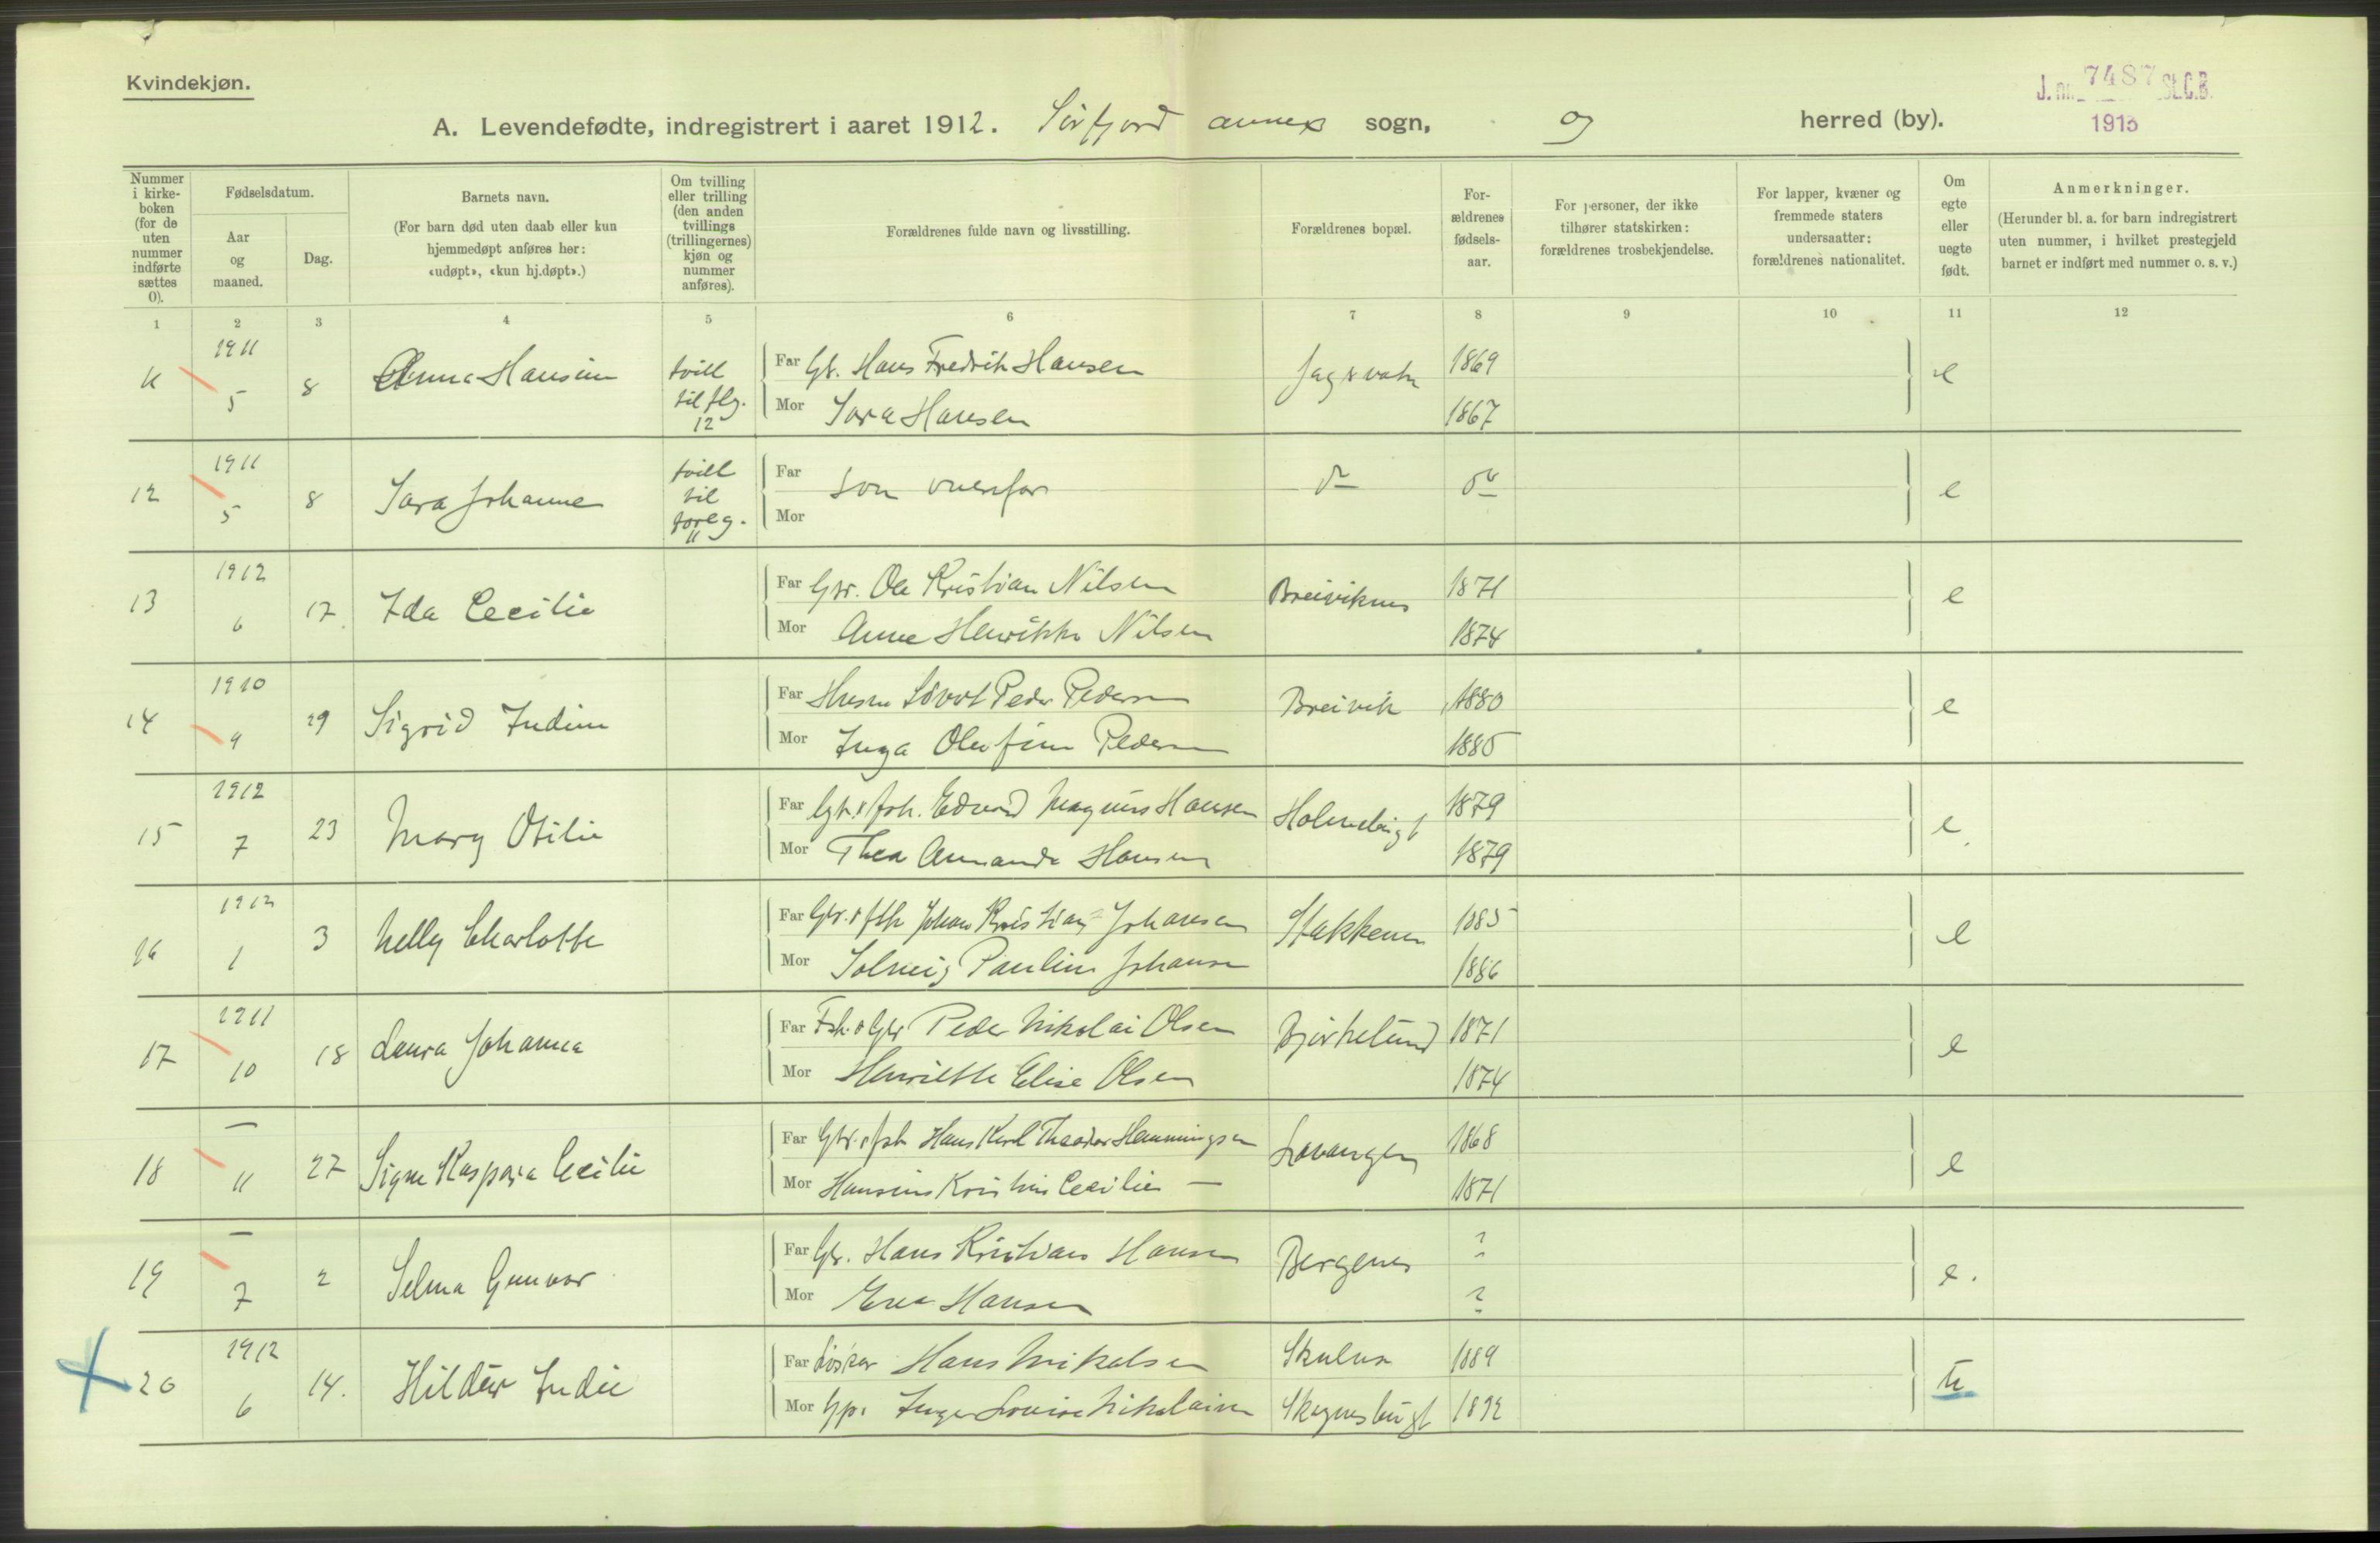 Kvindekjøn.
J. nr. 7487 St.C.B.
1913
A. Levendefødte, indregistrert i aaret 1912. Sörfjord annex sogn, og herred (by).
Nummer i kirkeboken (for de uten nummer indførte sættes 0).
Fødselsdatum.
Aar og maaned.
Dag.
Barnets navn.
(For barn død uten daab eller kun hjemmedøpt anføres her: «udøpt», «kun hj.døpt».)
Om tvilling eller trilling (den anden tvillings (trillingernes) kjøn og nummer anføres).
Forældrenes fulde navn og livsstilling.
Forældrenes bopæl.
Forældrenes fødselsaar.
For personer, der ikke tilhører statskirken: forældrenes trosbekjendelse.
For lapper, kvæner og fremmede staters undersaatter: forældrenes nationalitet.
Om egte eller uegte født.
Anmerkninger.
(Herunder bl. a. for barn indregistrert uten nummer, i hvilket prestegjeld barnet er indført med nummer o. s. v.)
1 2 3 4 5 6 7 8 9 10 11 12
11 1911 5 8 Anna Hansine tvill til flg. 12 Far Gb. Hans Fredrik Hansen 1869 e
Mor Sara Hansen 1867
12 1911 5 8 Sara Johanne tvill til foreg. 11 Far som ovenfor do do e
Mor
13 1912 6 17. Ida Cecilie Far Gbr. Ole Kristian Nilsen Breiviknes 1871 e
Mor Anne Henrikke Nilsen 1874
14 1910 9 29 Sigrid Indine Far Peder Pedersen Breivik 1880 e
Mor Inga Olufine Pedersen 1885
15 1912 7 23 Mary Otilie Far Gbr. & fsk. Edvard Magnus Hansen Holmebugt 1879 e
Mor Thea Amanda Hansen 1879
16 1912 1 3 Nelly Charlotte Far Gbr. & fsk Johan Kristian Johansen Stakkenes 1885 e
Mor Solveig Pauline Johansen 1886
17 1911 10 18 Laura Johanna Far Fsk. & Gbr Peder Nikolai Olsen Bjørkelund 1871 e
Mor Henriette Elise Olsen 1874
18 — 11 27 Signe Kaspara Cecilie Far Gbr. & fsk Hans Karl Theodor Henningsen Lavangen 1868 e
Mor Hansine Kristine Cecilie — 1871
19 — 7 2 Selma Gunvor Far Gb. Hans Kristian Hansen Bergenes ? e.
Mor Hansen ?
20 1912 6 14. Hildur Indie Far Løskar Hans Mikalsen 1889 u
Mor Gp. Inga Lovise Nikolaisen 1892